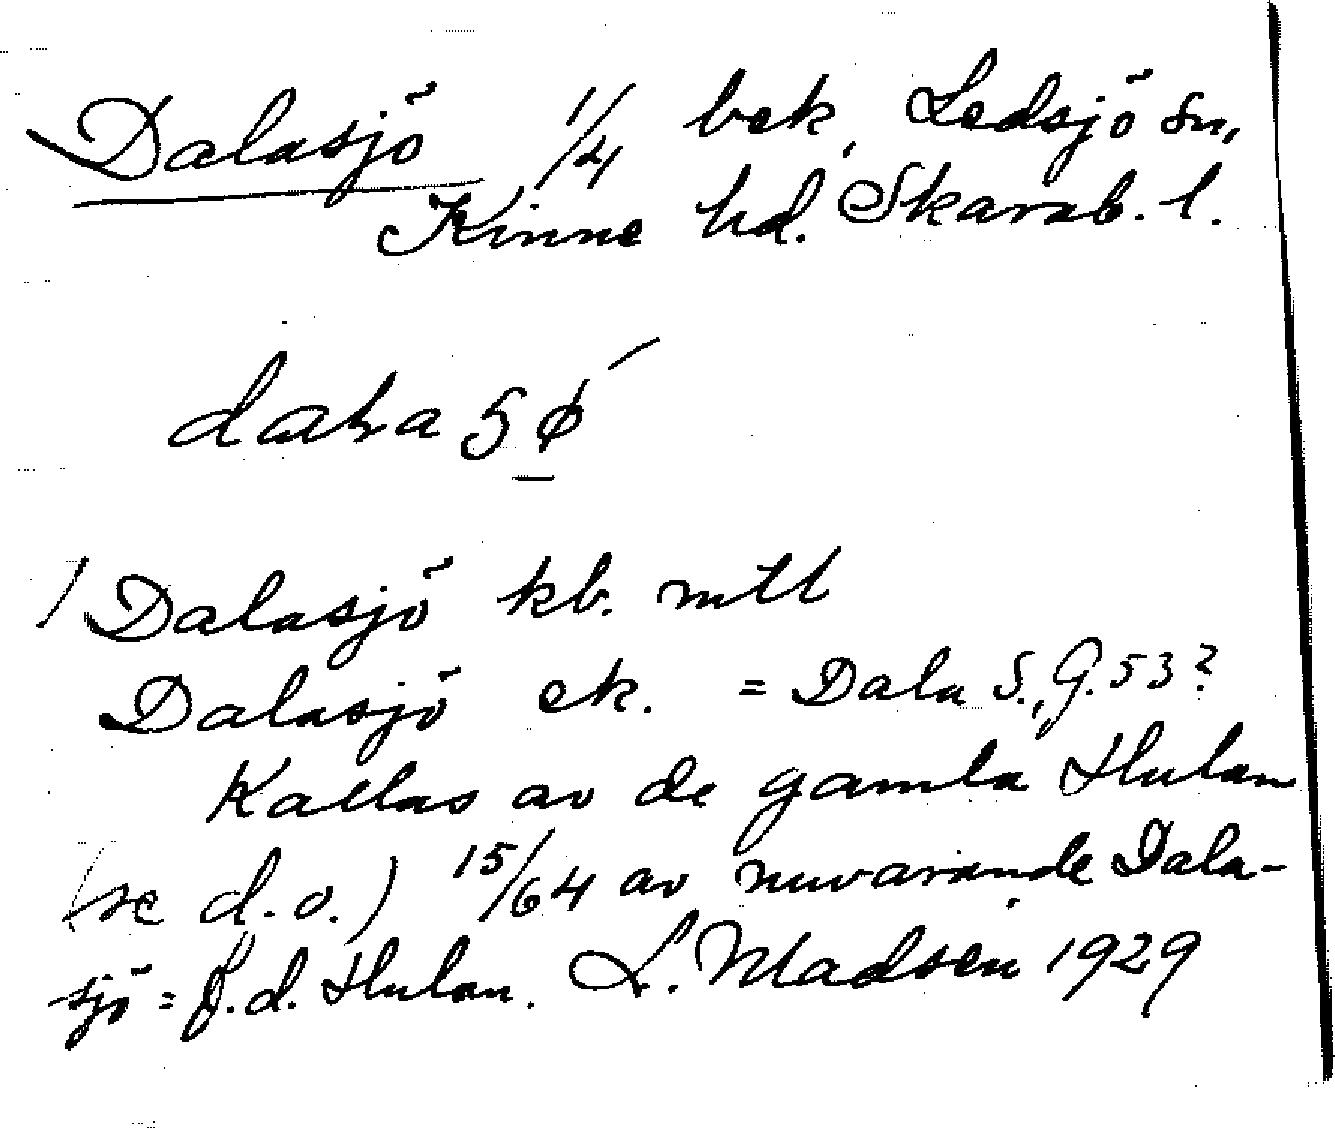 Dalasjö 1/4 bek, Ledsjö sn,
Kinne hd. Skarab. l.
1 Dalasjö kb. mtl
Dalasjö ek. = Dala S., G. 53?
Kallas av de gamla Hulan
(se d. o.) 15/64 av nuvarande Dala-
sjö = f. d. Hulan. L. Madsen 1929